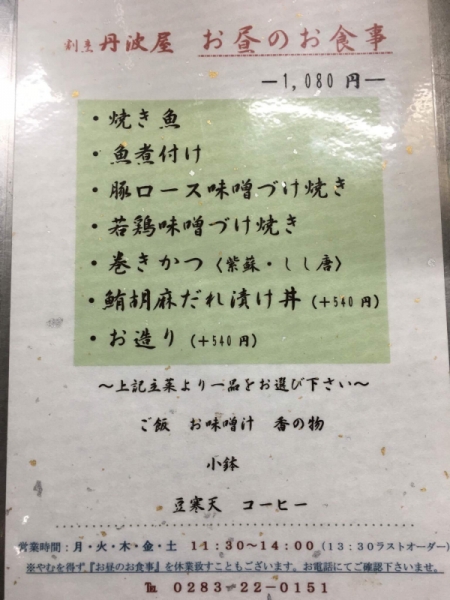 割烹 丹波屋 お昼のお食事
―1,080 円―
・焼き魚
・魚煮付け
・豚ロース味噌づけ焼き
・若鶏味噌づけ焼き
・巻きかつ〈紫蘇・しし唐〉
・鮪胡麻だれ漬け丼(+540 円)
・お造り(+540 円)
～上記主菜より一品をお選び下さい～
ご飯 お味噌汁 香の物
小鉢
豆寒天 コーヒー
営業時間:月・火・木・金・土 11:30~14:00(13:30ラストオーダー)
※やむを得ず『お昼のお食事』を休業致すこともございます。お電話にてご確認下さいませ。
℡ 0283-22-0151